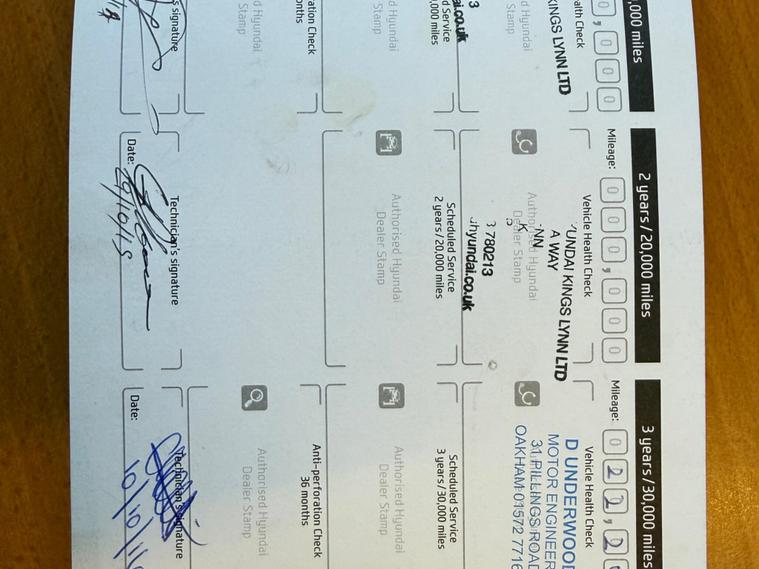 ,000 miles
0,000
ealth Check
KINGS LYNN LTD
d Hyundai
Stamp
3
ai.co.uk
d Service
0,000 miles
d Hyundai
Stamp
ration Check
onths
d Hyundai
Stamp
's signature
2 years / 20,000 miles
Mileage: 000,000
Vehicle Health Check
YUNDAI KINGS LYNN LTD
A WAY
NN
K
Authorised Hyundai
Dealer Stamp
3 780213
hyundai.co.uk
Scheduled Service
2 years/20,000 miles
Authorised Hyundai
Dealer Stamp
Technician's signature
Date: 29/10/15
3 years / 30,000 miles
Mileage: 022,2
Vehicle Health Check
D UNDERWOOD
MOTOR ENGINEER
31 PILLINGS ROAD
OAKHAM 01572 7716
Scheduled Service
3 years/30,000 miles
Authorised Hyundai
Dealer Stamp
Anti-perforation Check
36 months
Authorised Hyundai
Dealer Stamp
Technician's signature
Date: 10/10/16